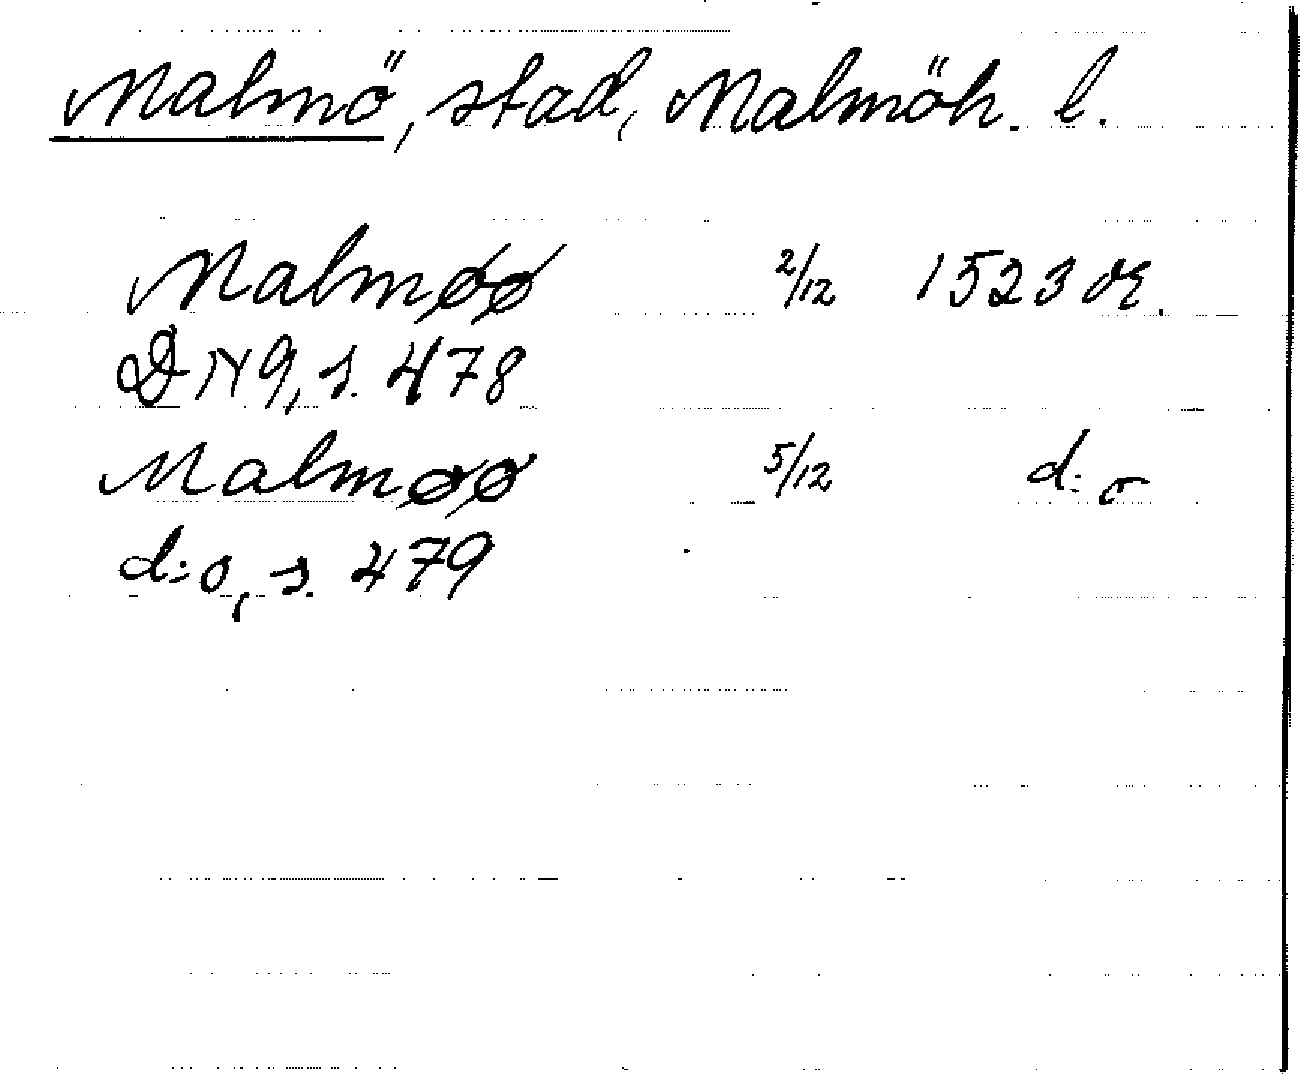 Malmö, stad, Malmöh. l.
Malmøø 2/12 1523 or.
DN 9, s. 478
Malmøø 5/12 d:o
d:o, s. 479